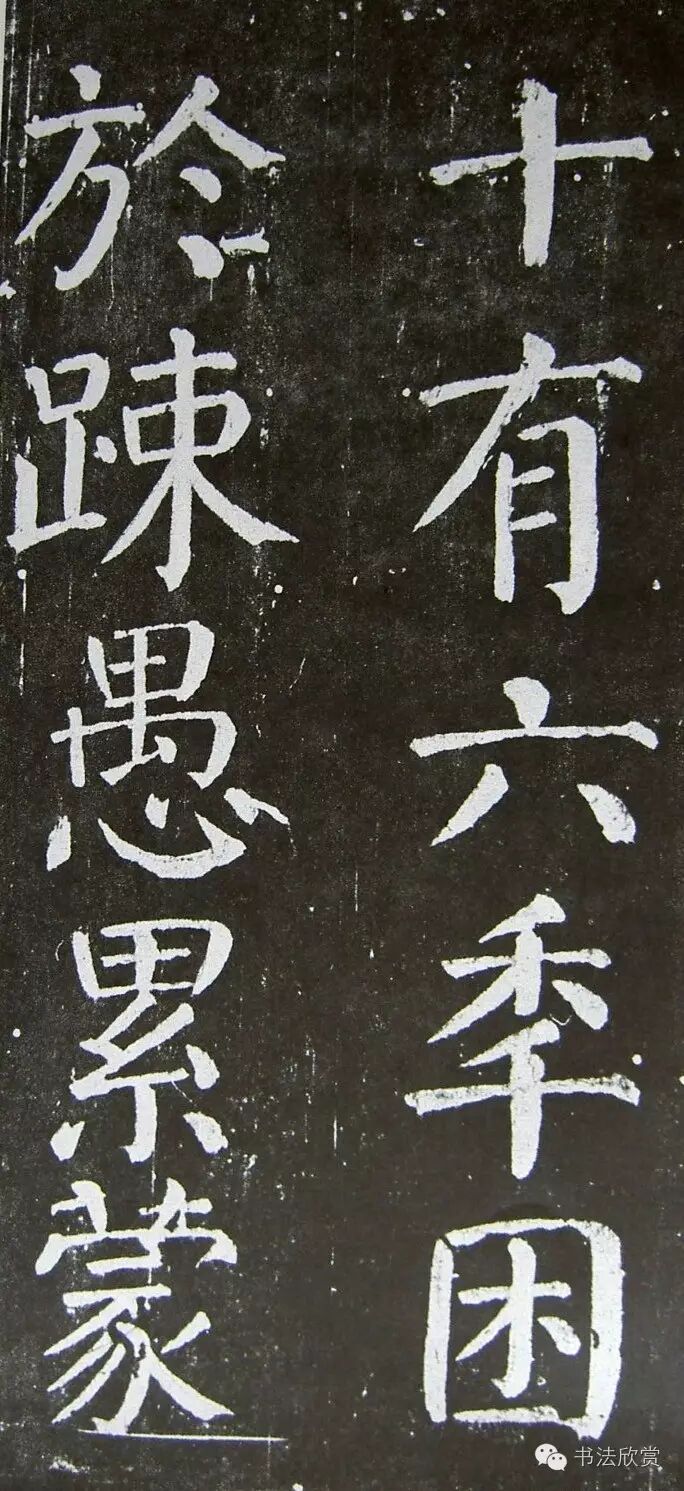 十有六秊困
於踈愚累蒙
书法欣赏